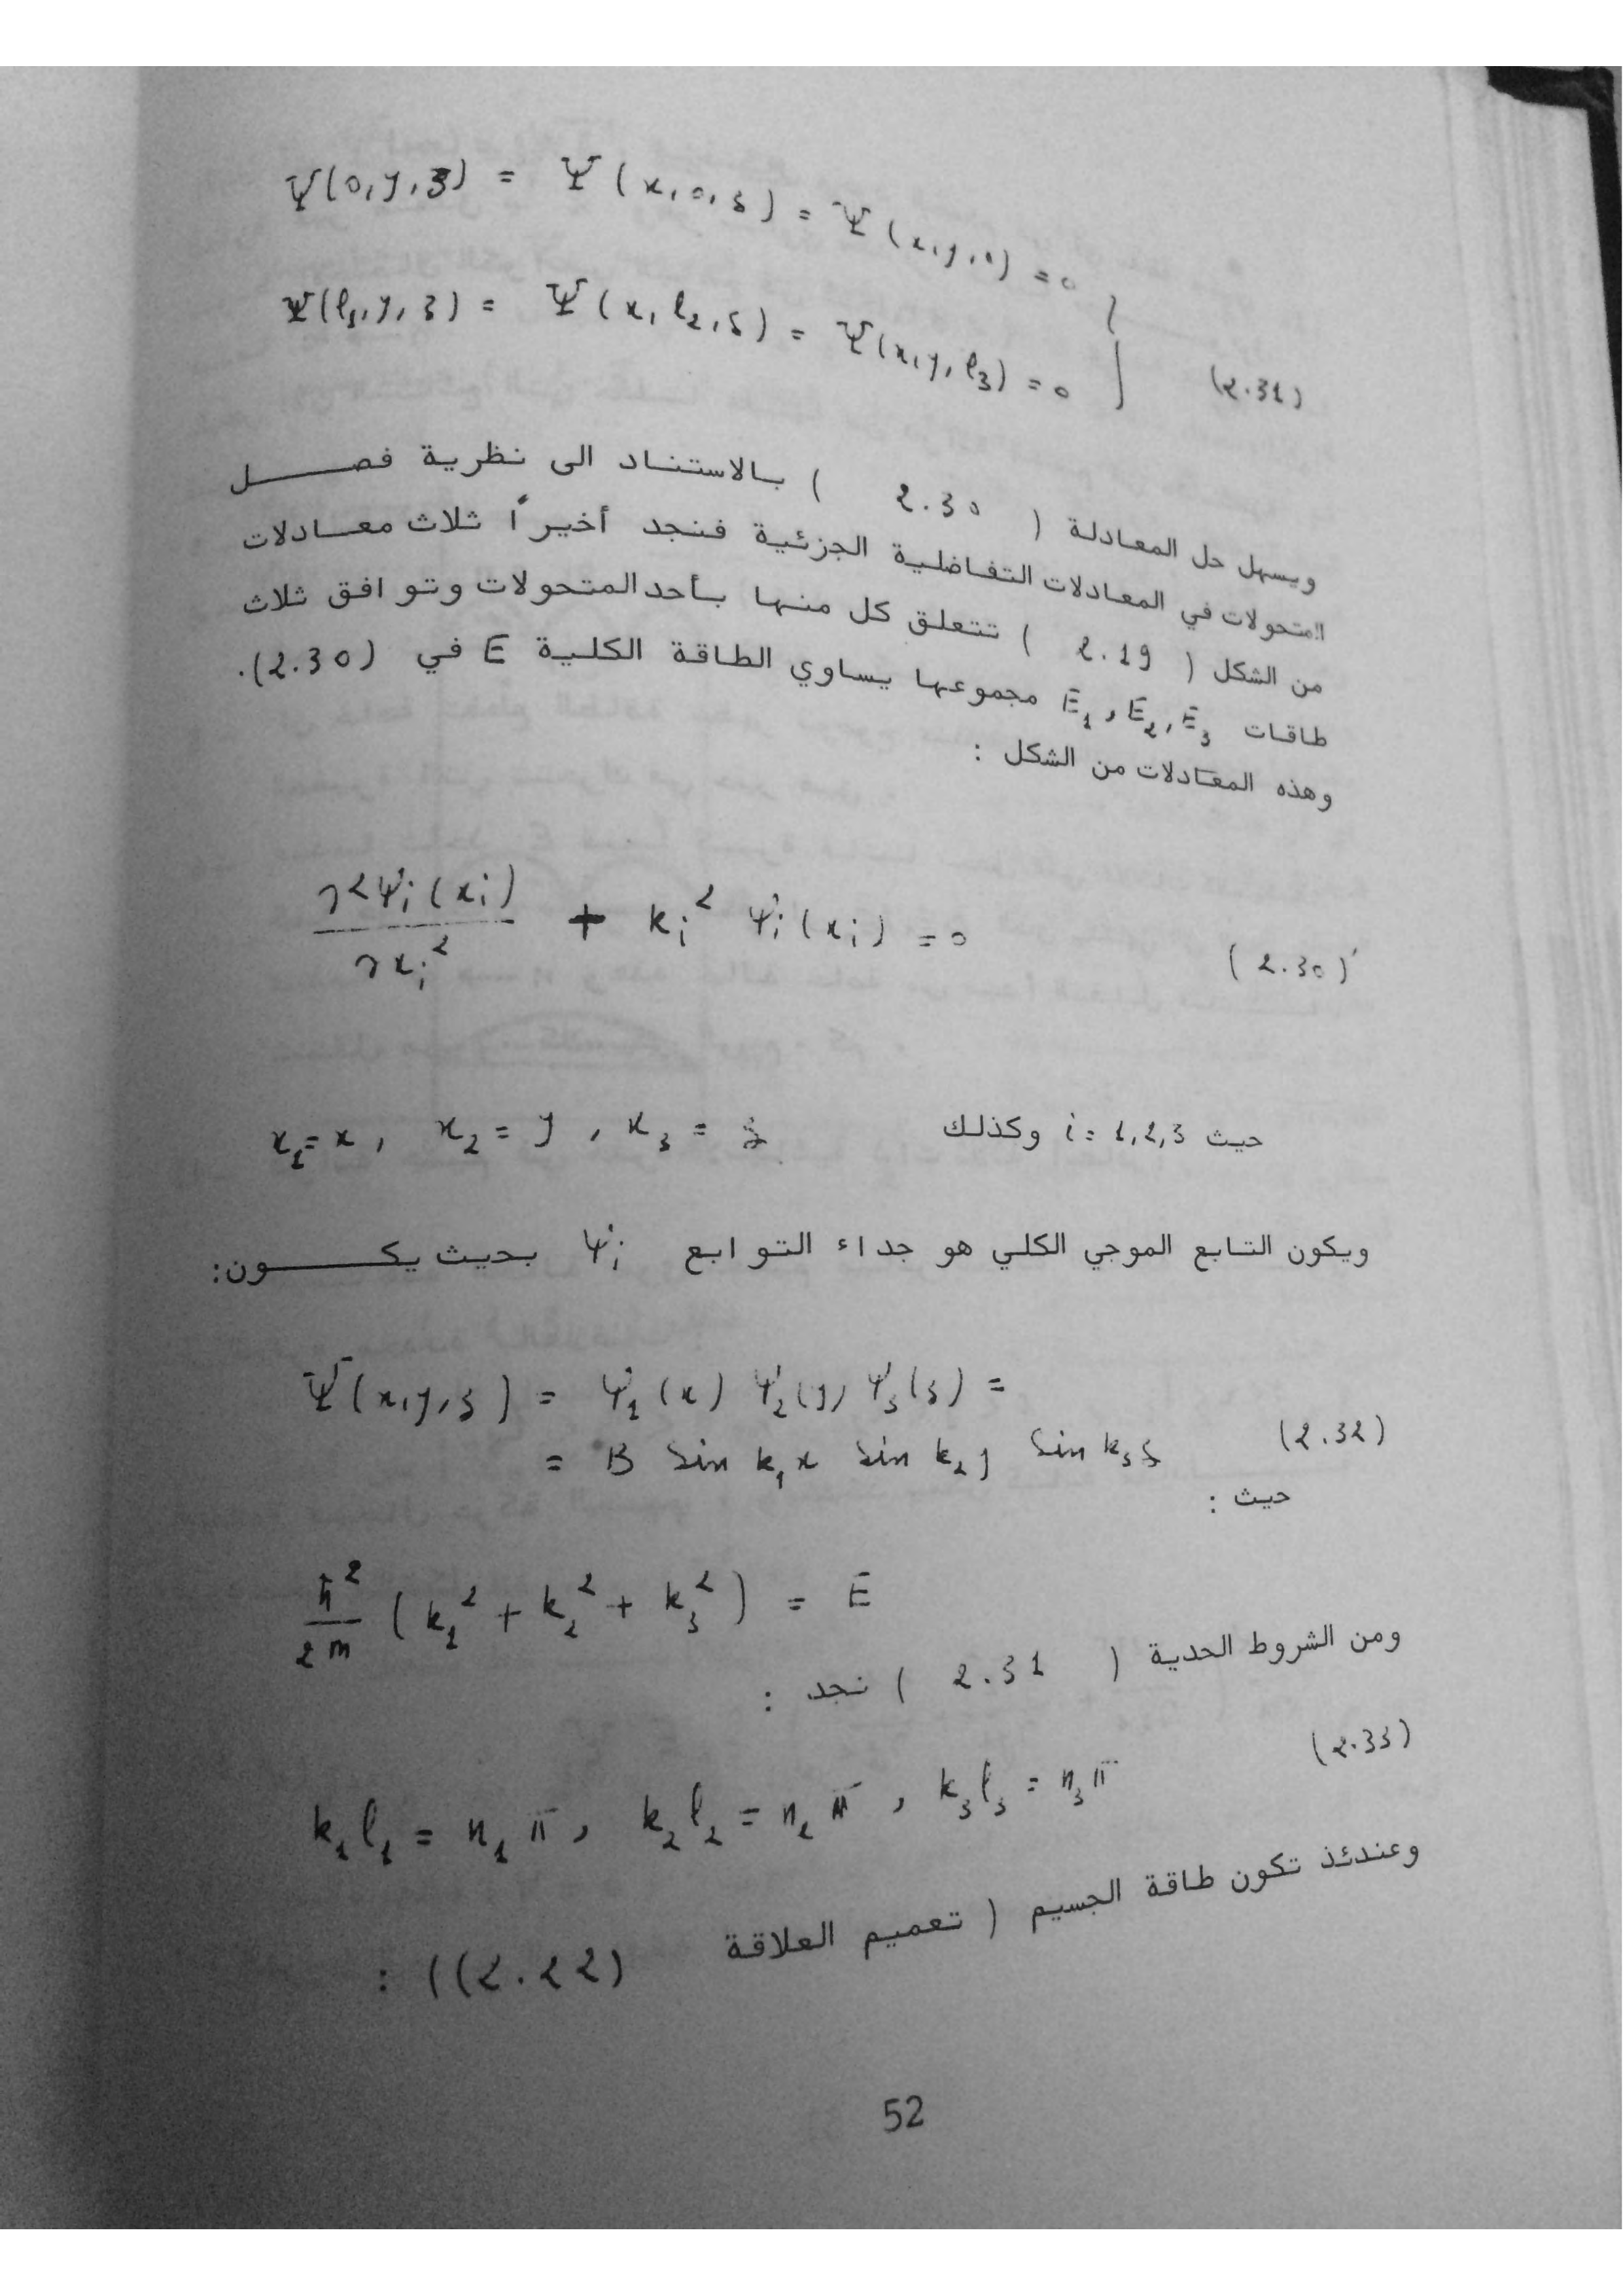 Ψ(0,y,z) = Ψ(x,0,z) = Ψ(x,y,0) = 0
Ψ(ℓ₁,y,z) = Ψ(x,ℓ₂,z) = Ψ(x,y,ℓ₃) = 0 } (2.31)
ويسهل حل المعادلة (2.30) بالاستناد الى نظرية فصل
المتحولات في المعادلات التفاضلية الجزئية فنجد أخيراً ثلاث معادلات
من الشكل (2.19) تتعلق كل منها بأحد المتحولات وتوافق ثلاث
طاقات E₁, E₂, E₃ مجموعها يساوي الطاقة الكلية E في (2.30).
وهذه المعادلات من الشكل :
∂²ψᵢ(xᵢ)/∂xᵢ² + kᵢ² ψᵢ(xᵢ) = 0 (2.30)'
حيث i = 1,2,3 وكذلك x₁ = x, x₂ = y, x₃ = z
ويكون التابع الموجي الكلي هو جداء التوابع ψᵢ بحيث يكون:
Ψ(x,y,z) = ψ₁(x) ψ₂(y) ψ₃(z) =
= B Sin k₁x Sin k₂y Sin k₃z (2.32)
حيث :
ħ²/2m (k₁² + k₂² + k₃²) = E
ومن الشروط الحدية (2.31) نجد :
k₁ℓ₁ = n₁π, k₂ℓ₂ = n₂π, k₃ℓ₃ = n₃π (2.33)
وعندئذ تكون طاقة الجسيم (تعميم العلاقة (2.22)) :
52